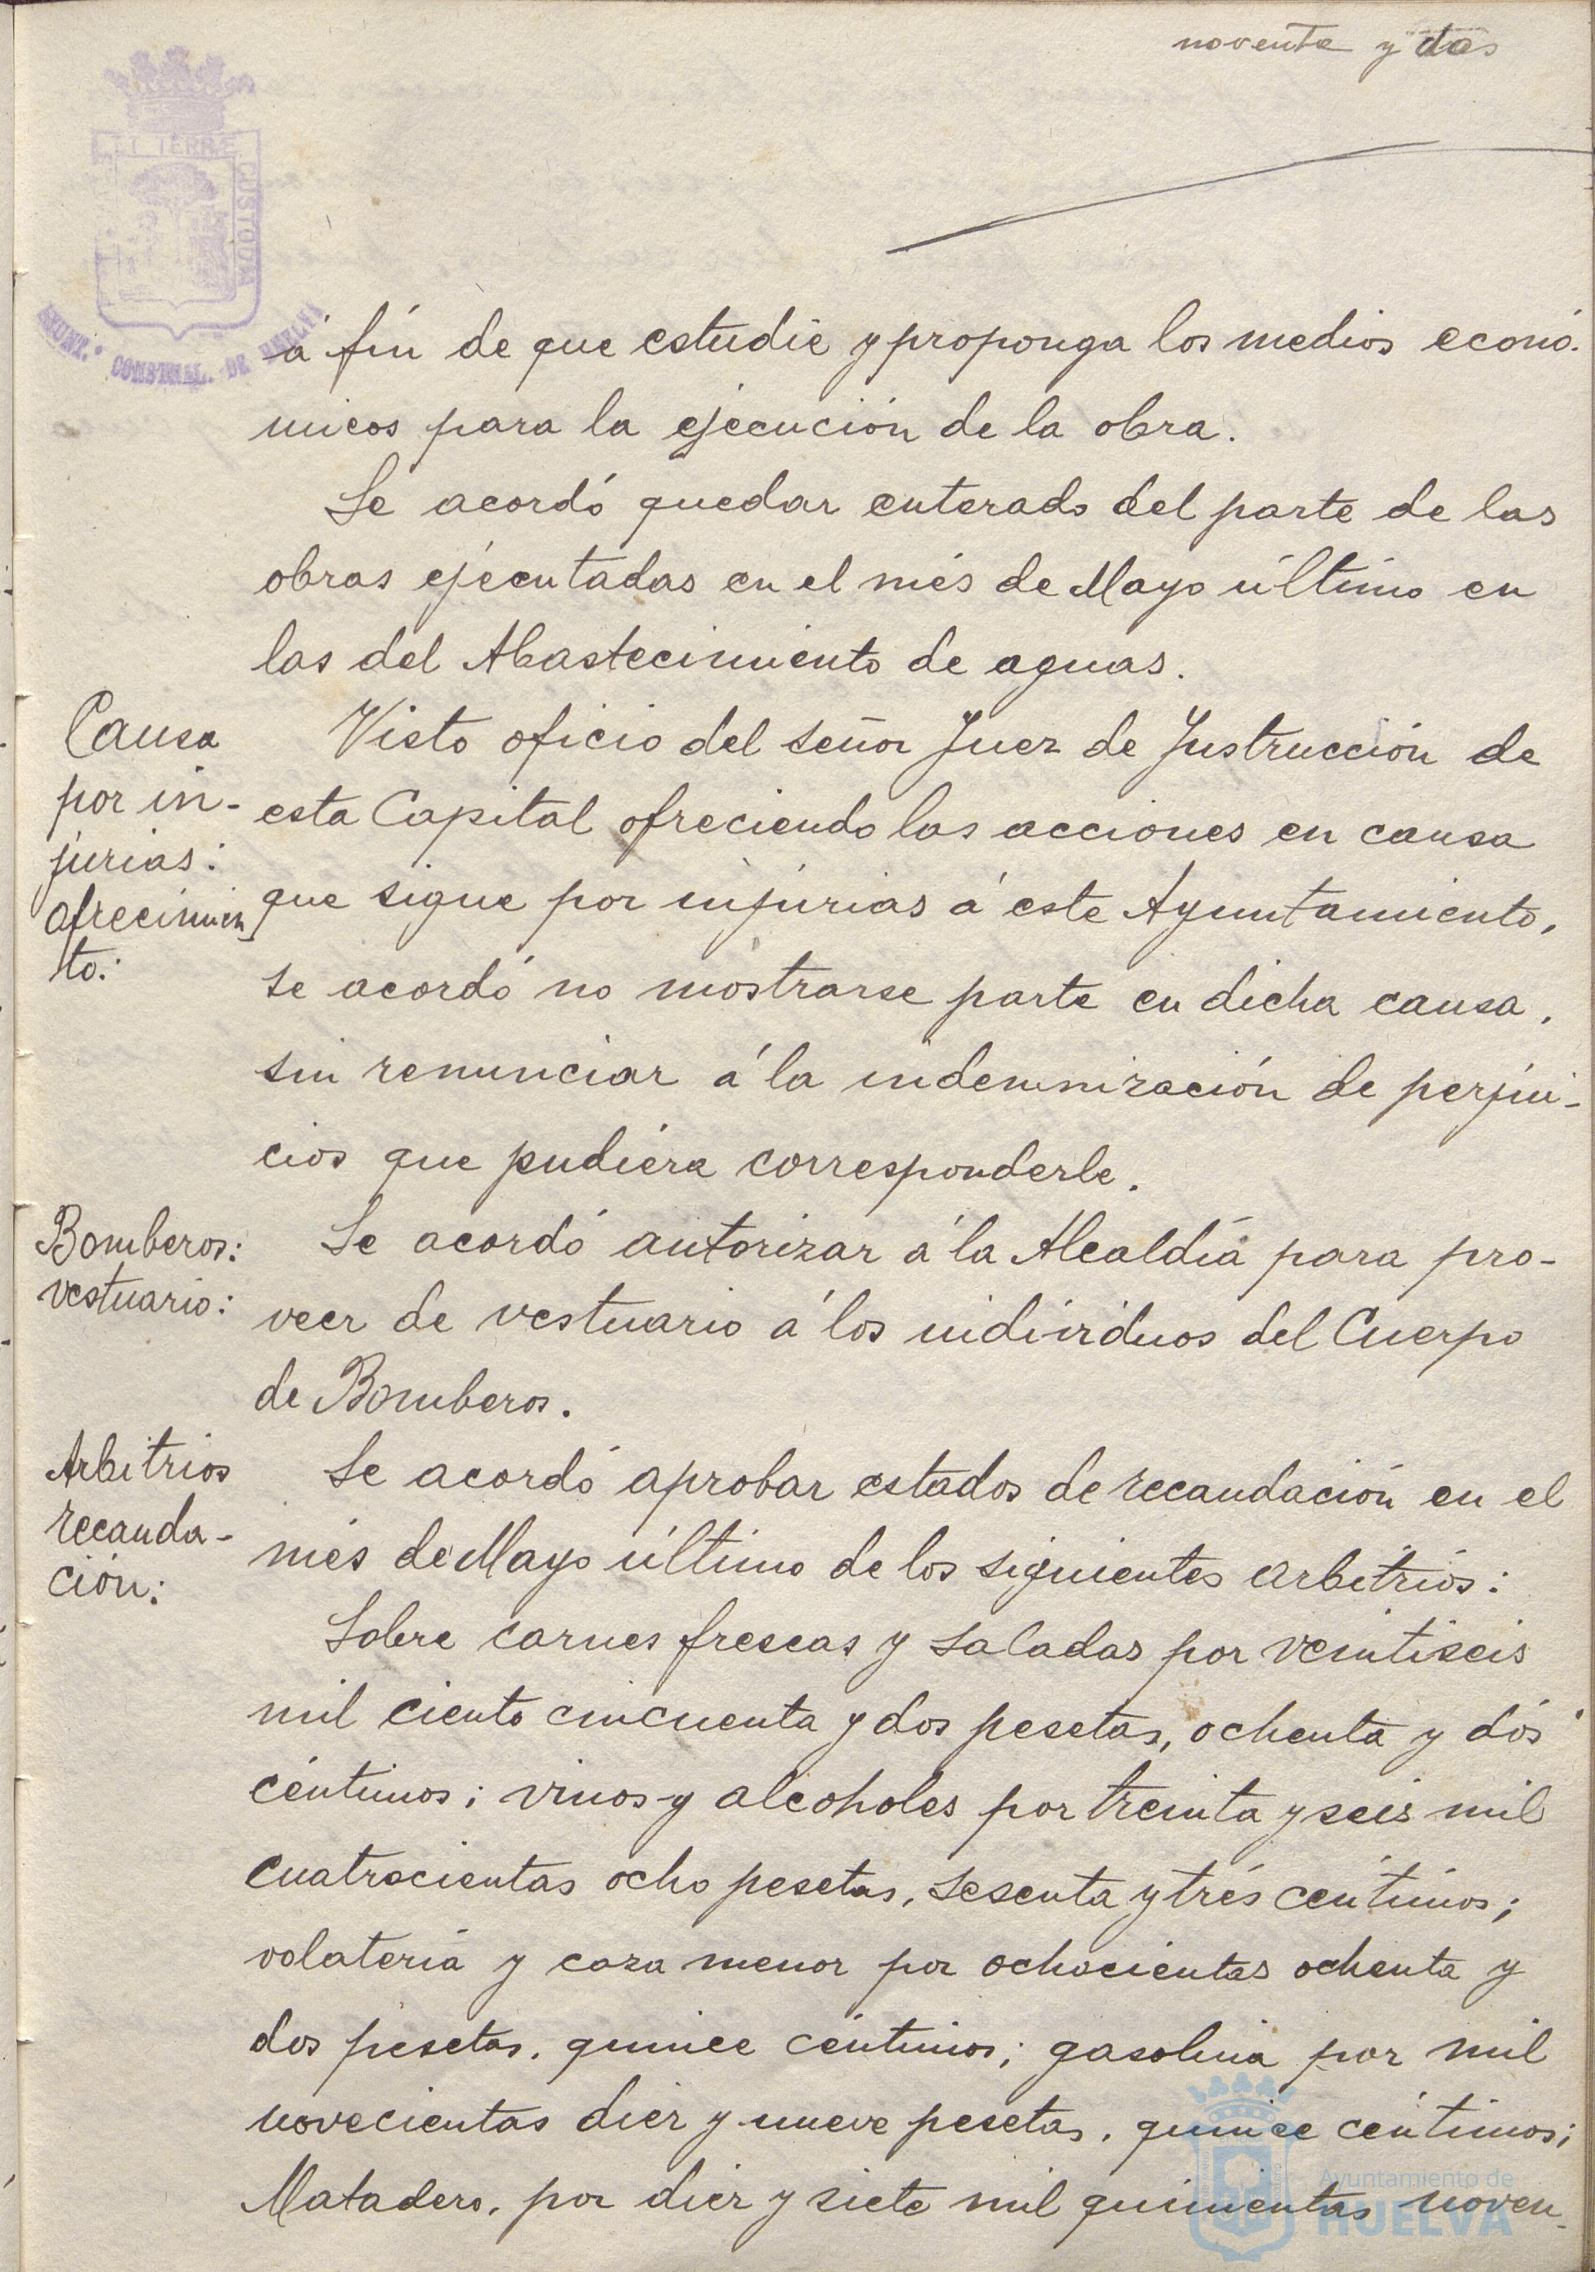 noventa y dos
á fin de que estudie y proponga los medios econó-
micos para la ejecución de la obra.
Se acordó quedar enterado del parte de las
obras ejecutadas en el més de Mayo último en
las del Abastecimiento de aguas.
Causa
por in-
jurias:
ofrecimien
to:
Visto oficio del señor Juez de Instrucción de
esta Capital ofreciendo las acciones en causa
que sigue por injurias á este Ayuntamiento,
se acordó no mostrarse parte en dicha causa,
sin renunciar á la indemnización de perjui-
cios que pudiera corresponderle.
Bomberos:
vestuario:
Se acordó autorizar á la Alcaldía para pro-
veer de vestuario á los individuos del Cuerpo
de Bomberos.
Arbitrios
recauda-
ción:
Se acordó aprobar estados de recaudación en el
més de Mayo último de los siguientes arbitrios:
Sobre carnes frescas y saladas por veintiseis
mil ciento cincuenta y dos pesetas, ochenta y dós
céntimos; vinos y alcoholes por treinta y seis mil
cuatrocientas ocho pesetas, sesenta y trés céntimos;
volatería y caza menor por ochocientas ochenta y
dos pesetas, quince céntimos; gasolina por mil
novecientas diez y nueve pesetas, quince céntimos;
Matadero, por diez y siete mil quinientas noven-
TERRÆ CUSTODIA
AYUNT.º CONSTNAL. DE HUELVA
Ayuntamiento de
HUELVA